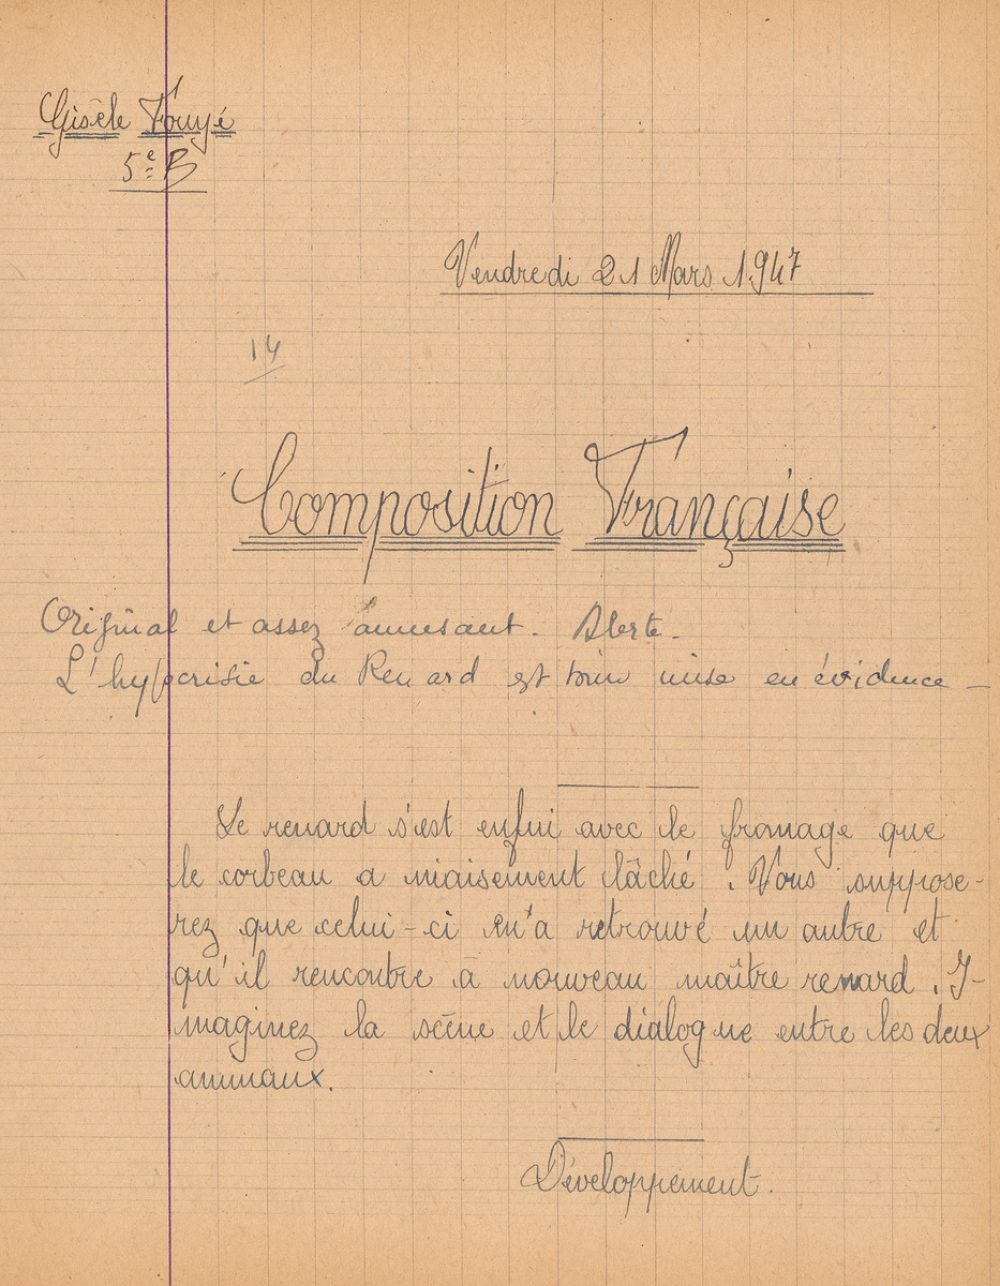 Gisèle Fouyé
5e B
Vendredi 21 Mars 1947
14
Composition Française
Original et assez amusant. Alerte.
L'hypocrisie du Renard est bien mise en évidence -
Le renard s'est enfui avec le fromage que
le corbeau a niaisement lâché. Vous suppose-
rez que celui-ci en a retrouvé un autre et
qu'il rencontre à nouveau maître renard. I-
maginez la scène et le dialogue entre les deux
animaux.
Développement.